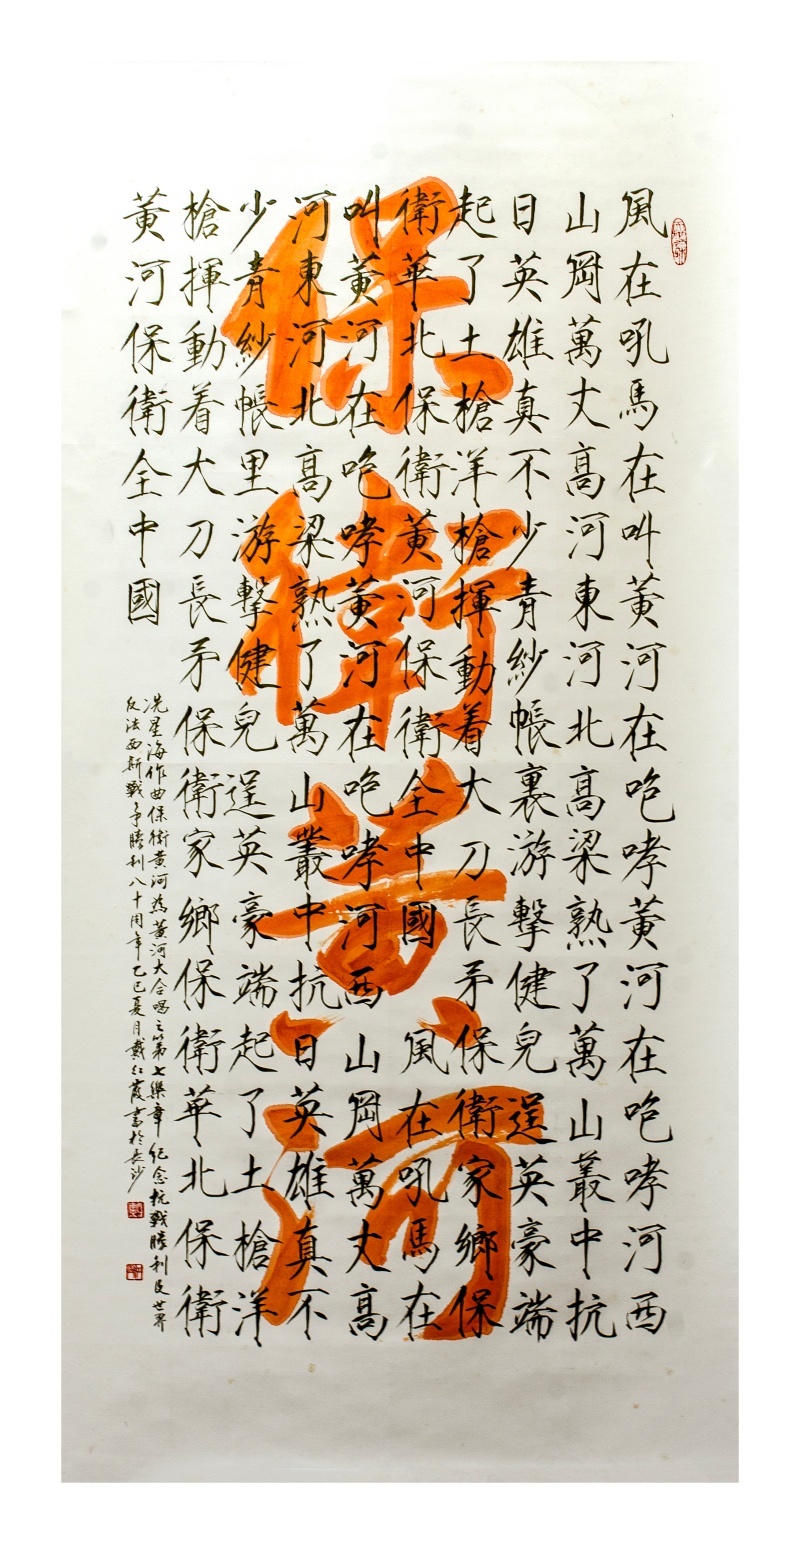 保衛黃河
風在吼馬在叫黃河在咆哮黃河在咆哮河西
山岡萬丈高河東河北高梁熟了萬山叢中抗
日英雄真不少青紗帳裏游擊健兒逞英豪端
起了土槍洋槍揮動着大刀長矛保衛家鄉保
衛華北保衛黃河保衛全中國風在吼馬在
叫黃河在咆哮黃河在咆哮河西山岡萬丈高
河東河北高梁熟了萬山叢中抗日英雄真不
少青紗帳里游擊健兒逞英豪端起了土槍洋
槍揮動着大刀長矛保衛家鄉保衛華北保衛
黃河保衛全中國
冼星海作曲保衛黃河為黃河大合唱之第七樂章紀念抗戰勝利及世界
反法西斯戰争勝利八十周年乙巳夏月戴红霞書於長沙